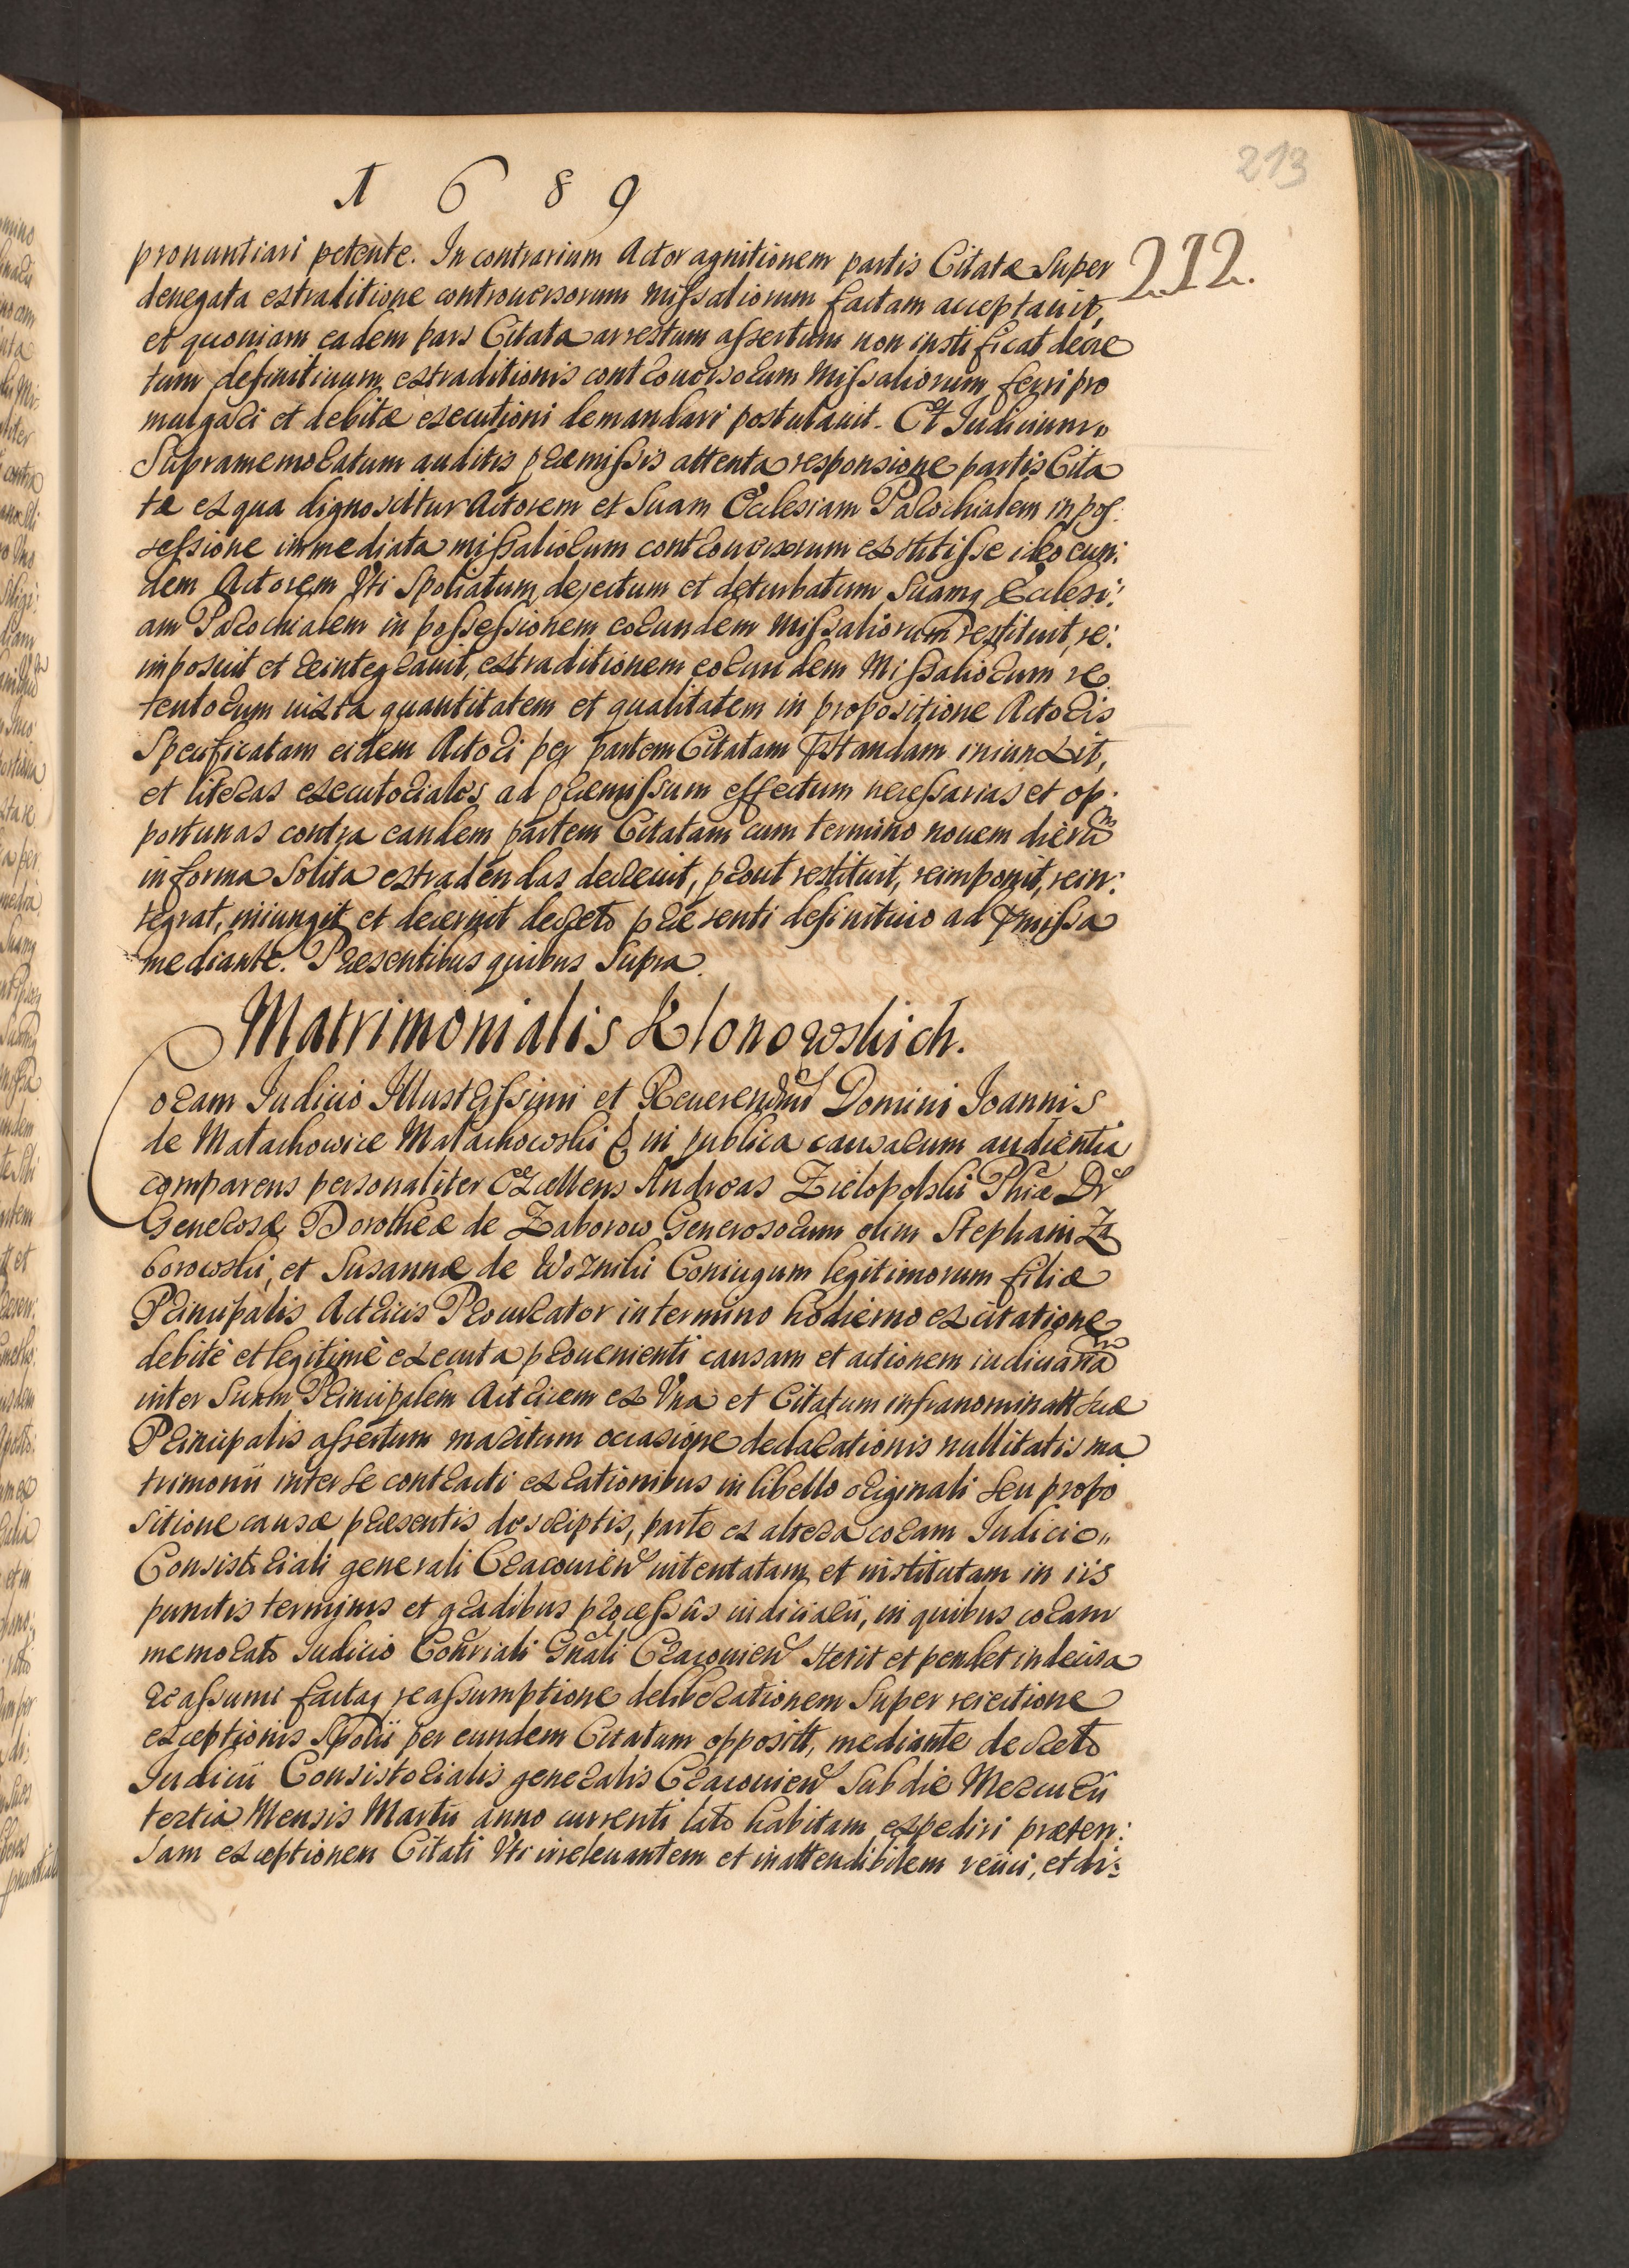 213
1 6 8 9
212.
pronuntiari petente. In contrarium Actor agnitionem partis Citatæ Super
denegata extraditione controuersorum missaliorum factam acceptauit,
et quoniam eadem pars Citata arrestum assertum non iustificat decre
tum definitiuum extraditionis controuersorum Missaliorum ferri pro
mulgari et debitæ executioni demandari postulauit. Et Iudicium
Supramemoratum auditis præmissis attenta responsione partis Cita
tæ ex qua dignoscitur Actorem et Suam Ecclesiam Parochialem in pos:
sessione immediata missaliorum controuersorum extitisse ideo eun:
dem Actorem Vti Spoliatum, dejectum et deturbatum Suamq Ecclesi:
am Parochialem in possessionem eorundem Missaliorum restituit, re:
imposuit et reintegrauit, extraditionem eorundem Missaliorum re
tentorum iuxta quantitatem et qualitatem in propositione Actoris
Specificatam eidem Actori per partem Citatam præstandam iniunxit,
et literas executoriales ad præmissum effectum necessarias et op:
portunas contra eandem partem Citatam cum termino nouem dierum
in forma Solita extradendas decreuit, prout restituit, reimponit, rein:
tegrat, iniungit et decernit decreto præsenti definitiuo ad præmissa
mediante. Præsentibus quibus Supra.
Matrimonialis Klonowskich.
Coram Iudicio Illustrissimi et Reuerendmi Domini Ioannis
de Małachowice Małachowski & in publica causarum audientia
comparens personaliter Excellens Andreas Zielopolski Phiæ Dr
Generosæ Dorotheæ de Zaborow Generosorum olim Stephani Za
borowski, et Susannæ de Woźniki Coniugum legitimorum filiæ
Principalis Actricis Procurator in termino hodierno ex citatione
debitè et legitimè executa prouenienti causam et actionem iudiciariam
inter Suam Principalem Actricem ex Vna et Citatum infranominatt Suæ
Principalis assertum maritum occasione declarationis nullitatis ma
trimonii inter se contracti ex rationibus in libello originali seu propo
sitione causæ præsentis descriptis, parte ex altera coram Iudicio
Consistoriali generali Cracouien intentatam et institutam in iis
punctis terminis et gradibus processûs iudiciarii, in quibus coram
memorato Iudicio Conriali Gnali Cracouien Stetit et pendet indecisa
reassumi factaq reassumptione deliberationem Super reiectione
exceptionis Spolii per eundem Citatum opposift, mediante decreto
Iudicii Consistorialis generalis Cracouien Sub die Mercurii
tertia Mensis Martii anno currenti lato habitam expediri præten:
sam exceptionem Citati Vti irreleuantem et inattendibilem reiici, et di: